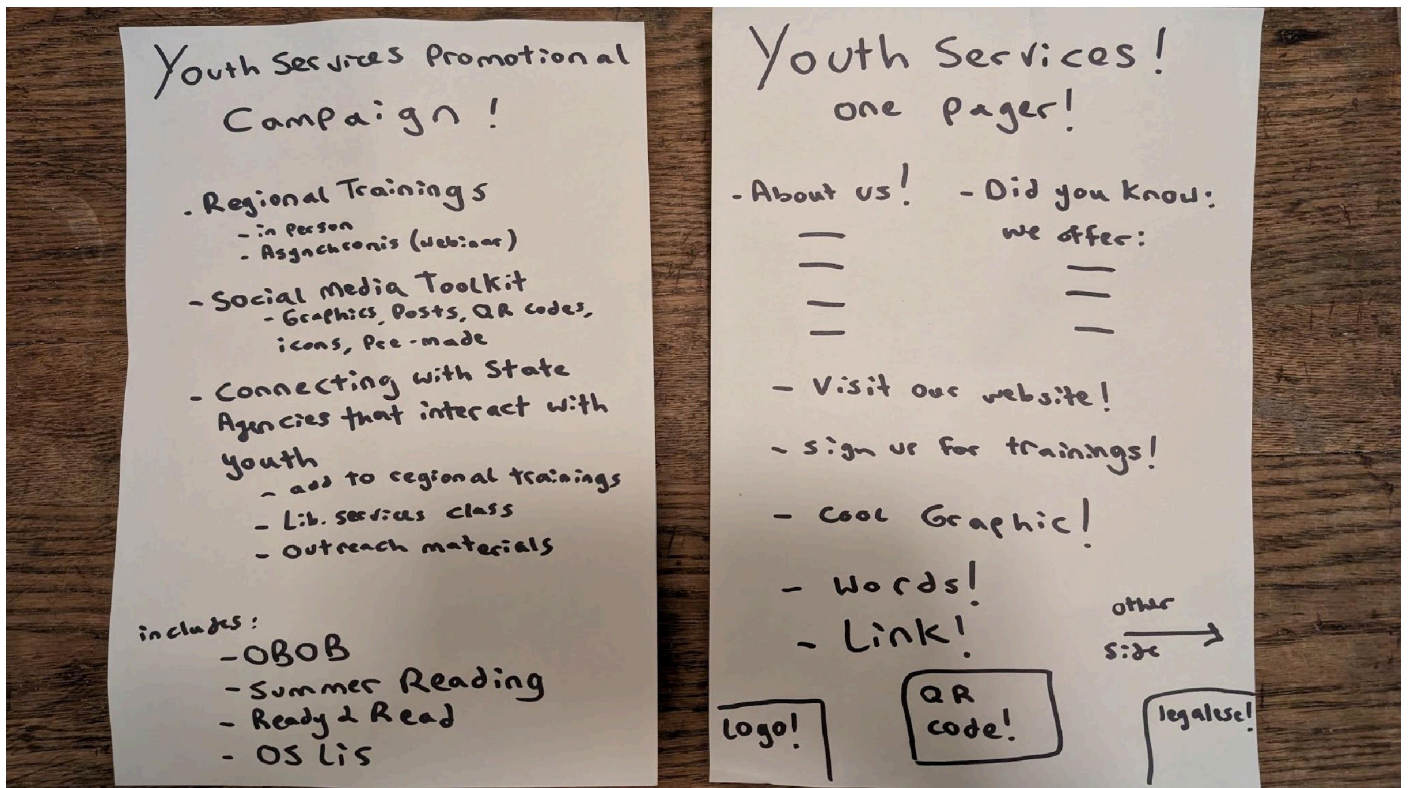 Youth Services Promotional
Campaign!
- Regional Trainings
- in person
- Asynchronis (webinar)
- Social media Toolkit
- Graphics, Posts, QR codes,
icons, Pre-made
- Connecting with State
Agencies that interact with
youth
- add to regional trainings
- Lib. services class
- outreach materials
includes:
- OBOB
- Summer Reading
- Ready 2 Read
- OSLis
Youth Services!
one pager!
- About us!
- Did you know:
we offer:
- Visit our website!
- sign up for trainings!
- cool Graphic!
- Words!
- Link!
other
side
Logo!
QR
code!
legalese!